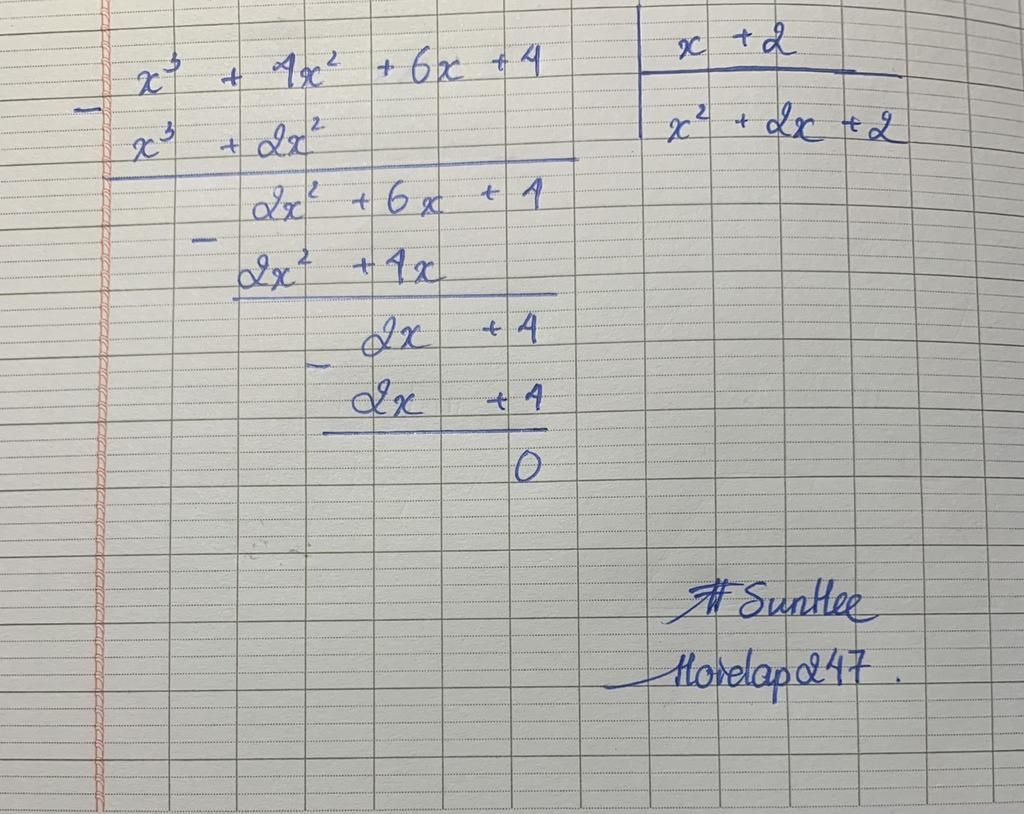 x³ + 4x² + 6x + 4
x + 2
−
x³ + 2x²
x² + 2x + 2
2x² + 6x + 4
−
2x² + 4x
2x + 4
−
2x + 4
0
#SunHee
Hoidap247.